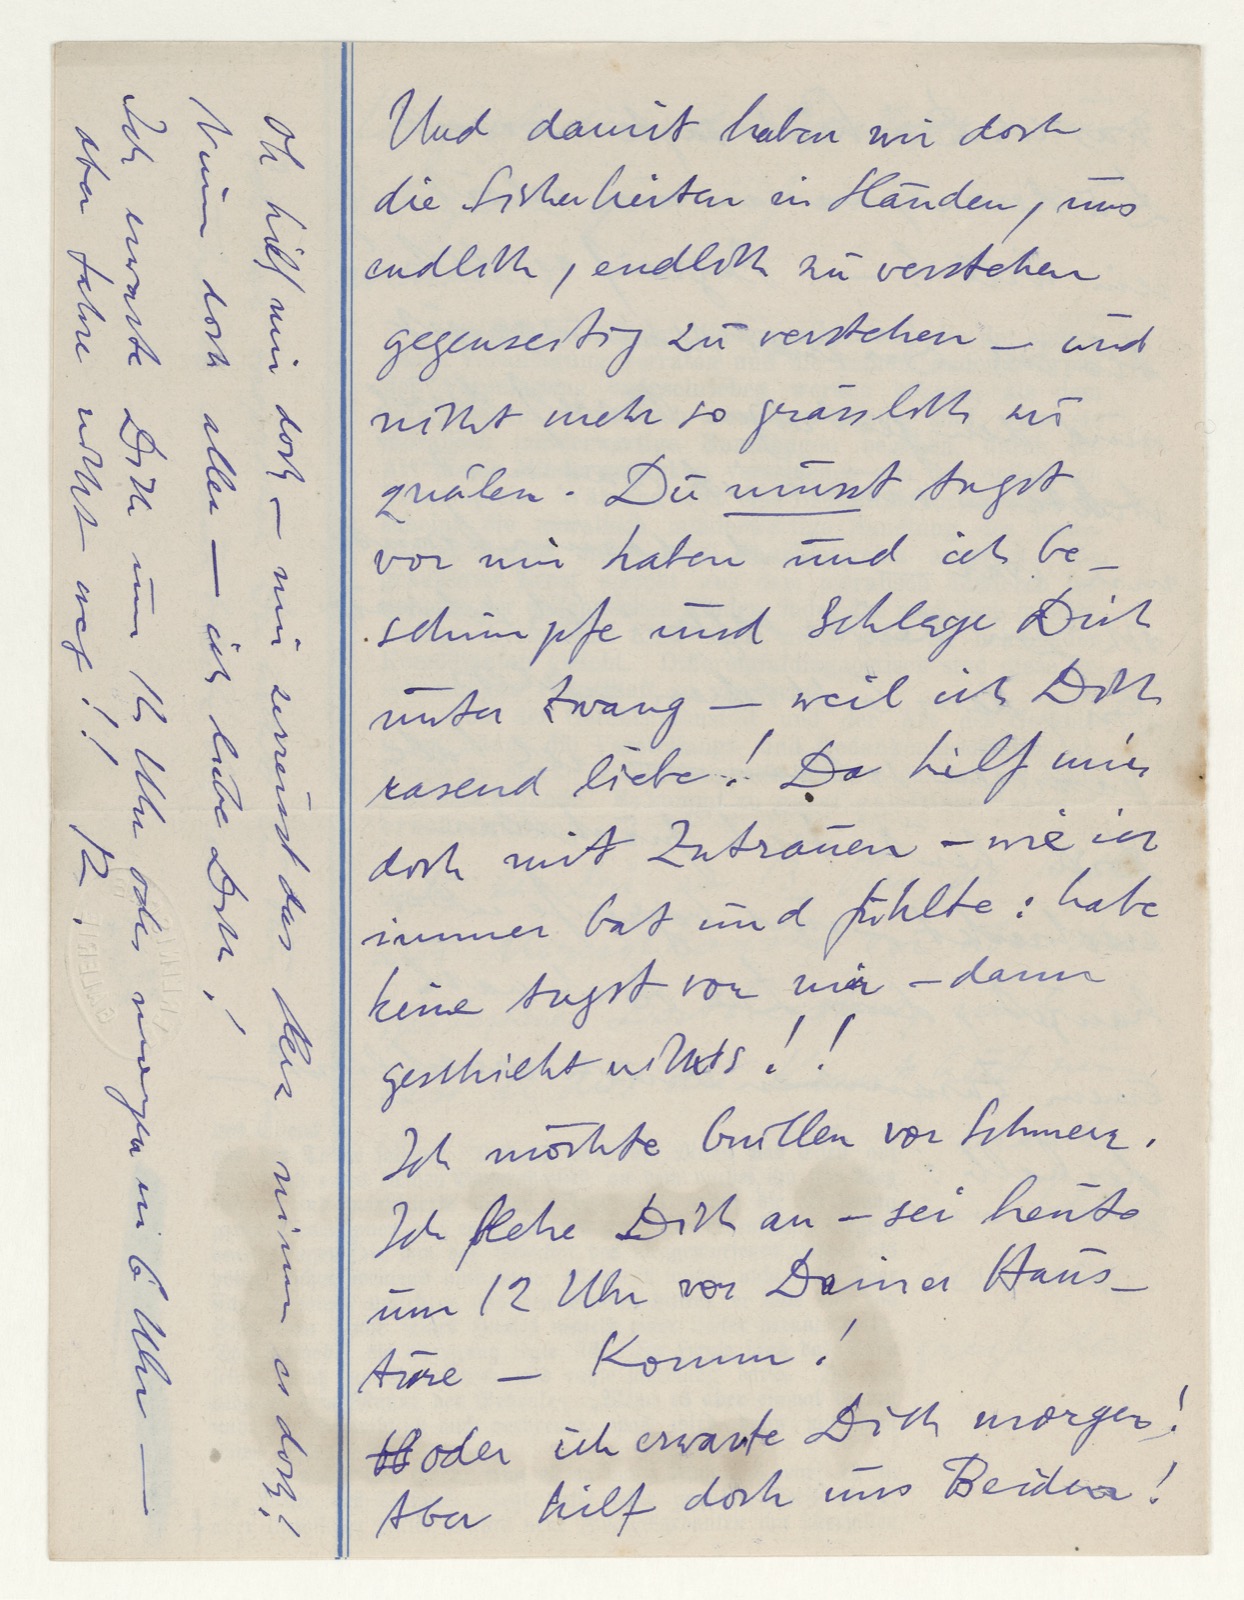 Und damit haben wir doch
die Sicherheiten in Händen, uns
endlich, endlich zu verstehen
gegenseitig zu verstehen – und
nicht mehr so grässlich zu
quälen. Du musst Angst
vor mir haben und ich be-
schimpfe und schlage Dich
unter Zwang – weil ich Dich
rasend liebe! Da hilf mir
doch mit Zutrauen – wie ich
immer bat und fühlte: habe
keine Angst vor mir – dann
geschieht nichts!!
Ich möchte brüllen vor Schmerz.
Ich flehe Dich an – sei heute
um 12 Uhr vor Deiner Haus-
türe – Komm!
oder ich erwarte Dich morgen!
Aber hilf doch uns Beiden!
Oh hilf mir doch – mir zerreisst das Herz nimm es doch!
Nimm doch alles — ich liebe Dich!
Ich erwarte Dich um Uhr oder morgen um 6 Uhr —
aber fahre nicht weg!! R.